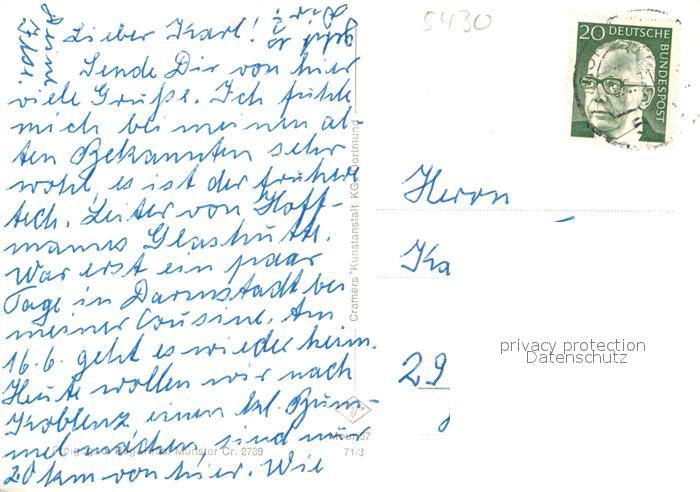 Lieber Karl!
Sende Dir von hier
viele Grüße. Ich fühle
mich bei meinen al-
ten Bekannten sehr
wohl, es ist der frühere
tech. Leiter von Hoff-
manns Glashütte.
War erst ein paar
Tage in Darmstadt bei
meiner Cousine. Am
16.6. geht es wieder heim.
Heute wollen wir nach
Koblenz einen kl. Bum-
mel machen, sind nur
20 km von hier. Wie
geht es
Dir?
Deine
Cramers Kunstanstalt KG. Dortmund
Cr. 2789
71/3
5430
20 DEUTSCHE
BUNDESPOST
Herrn
Ka
29
privacy protection
Datenschutz